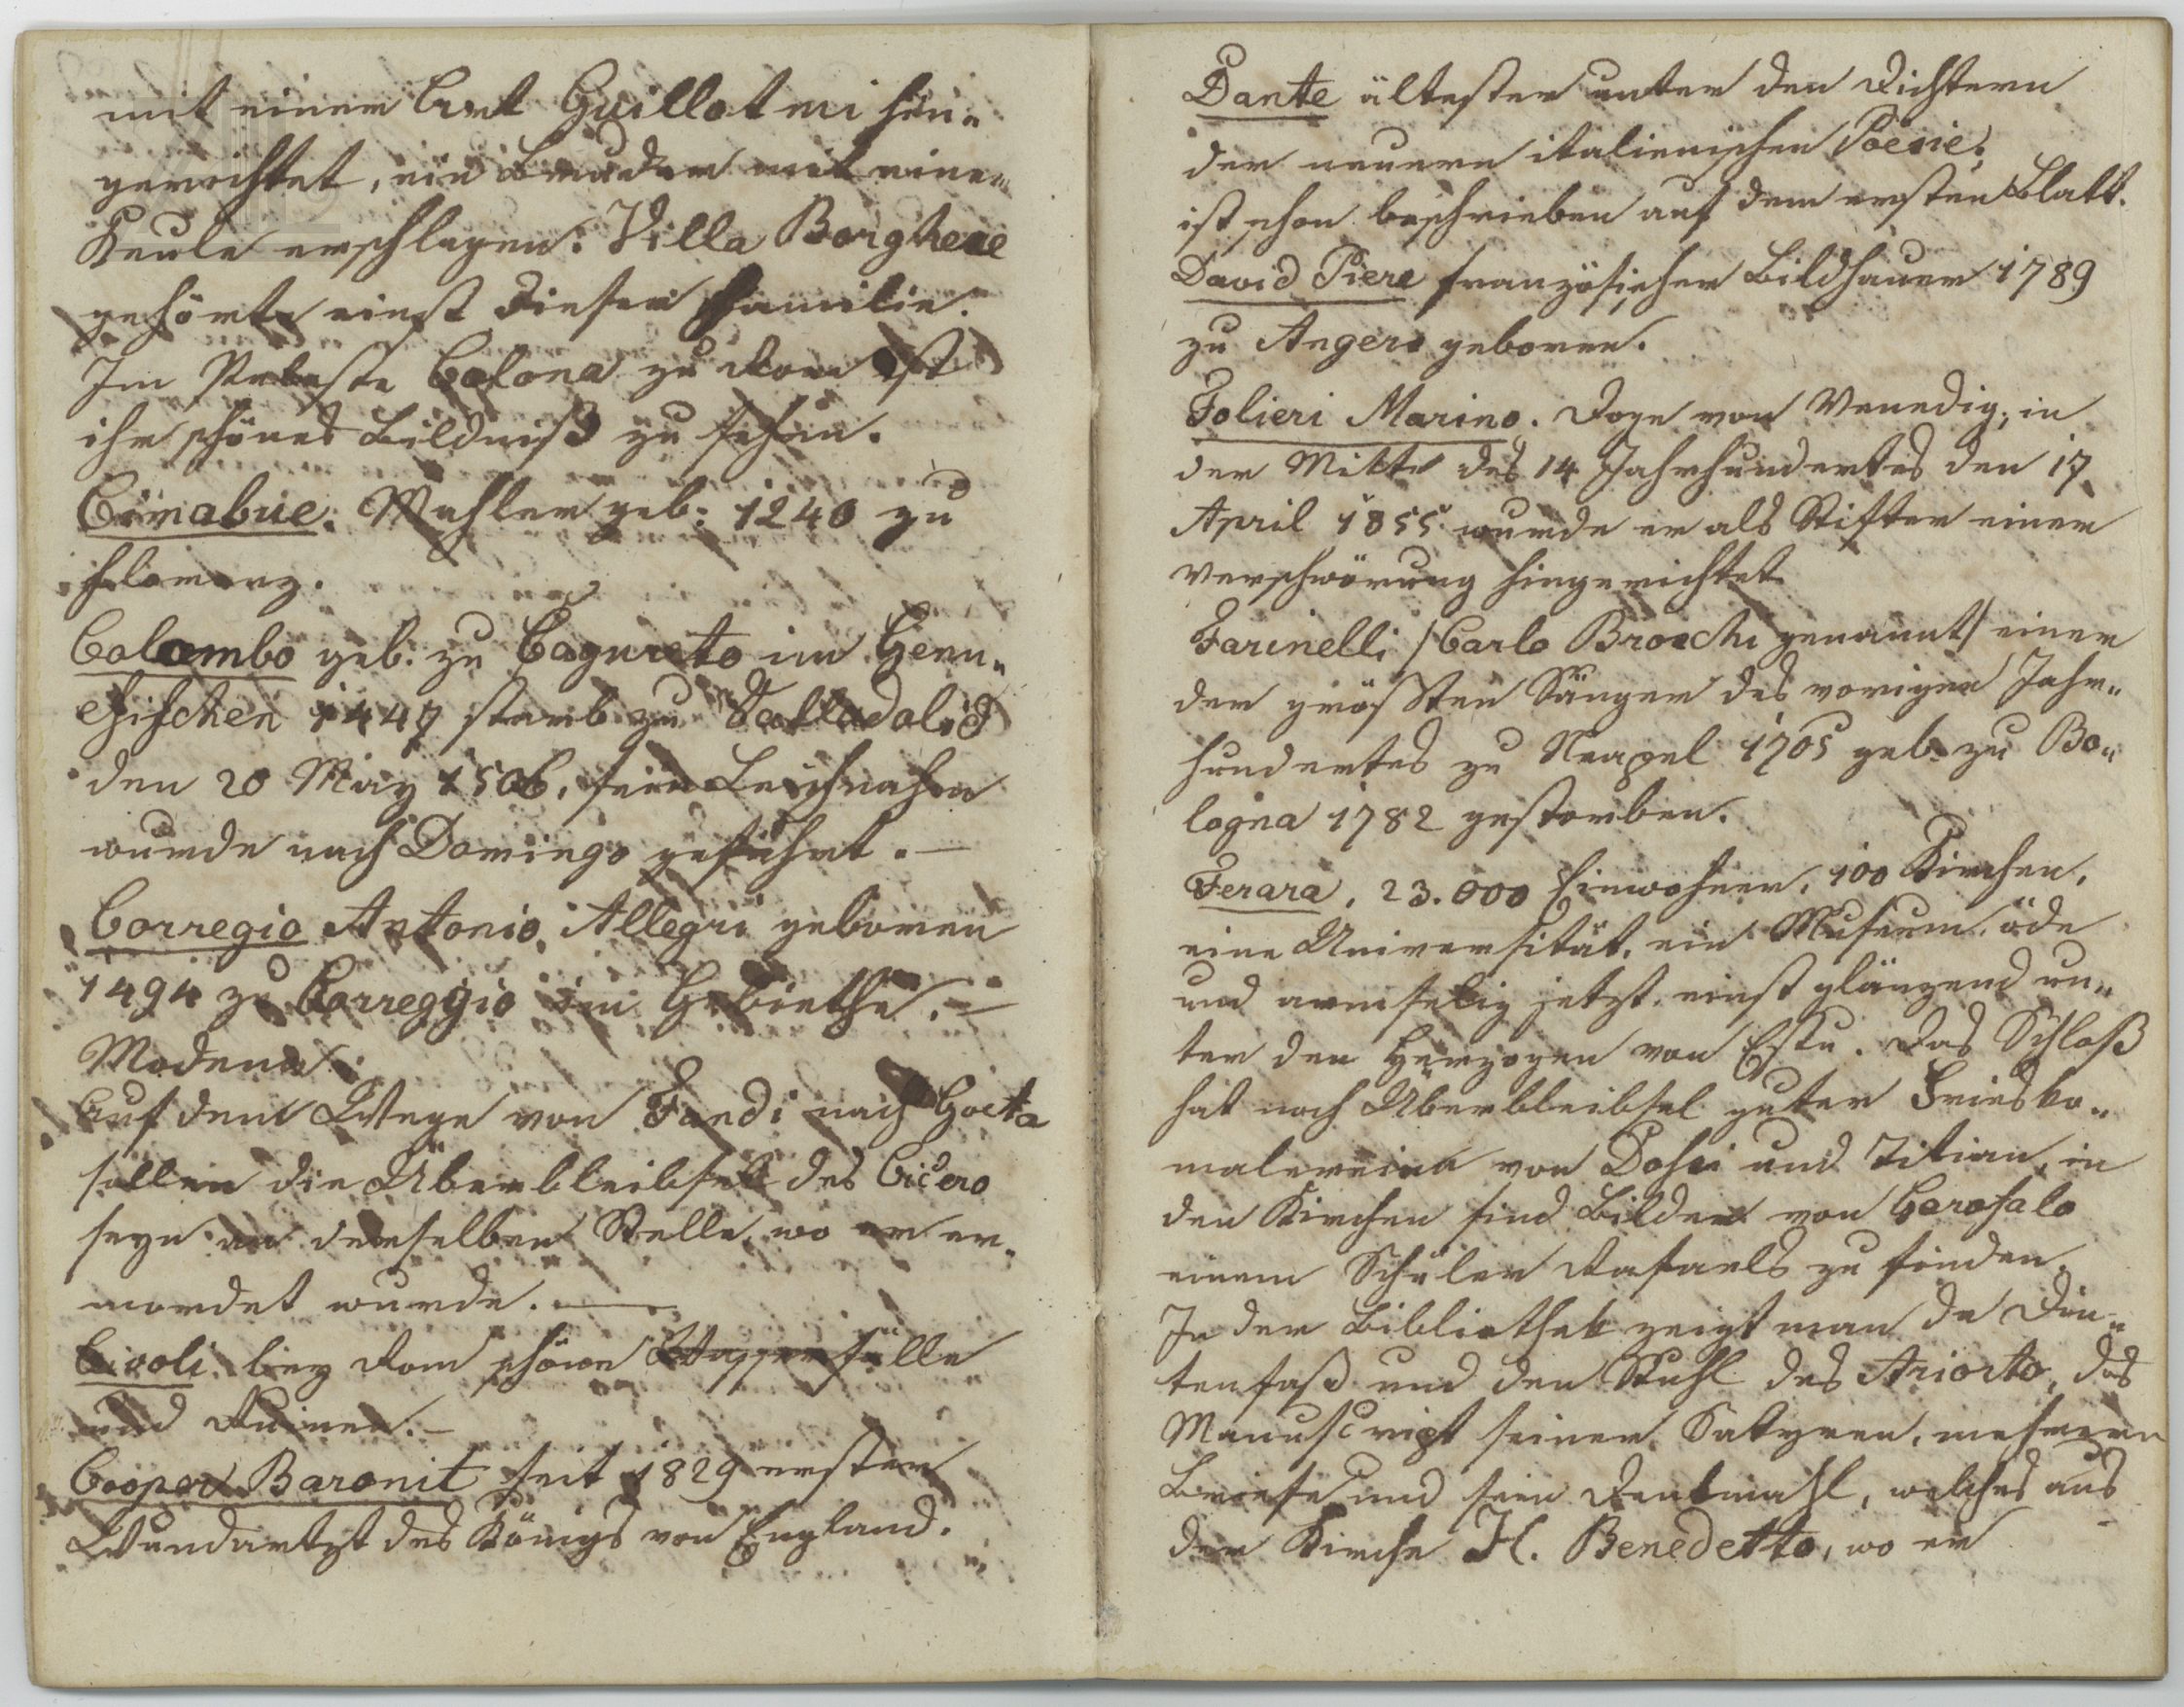 mit einer Art Guillotmi hin„
gerichtet, ein Bruder mit einer
Keule erschlagen: Villa Borghese
gehörte einst dieser Familie.
Im Pallaste Colona zu Rom ist
ihr schönes Bildniß zu sehen.
Cimabue. Mahler geb: 1240 zu
Florenz.
Colombo geb: zu Cogureto im Genu„
esischen 1447 starb zu Valladolid
den 20 May 1506, sein Leichnahm
wurde nach Domingo geführt. —
Corregio Antonio, Allegri geboren
1494 zu Correggio im Gebiethe. —
Modena.
Auf dem Wege von Fondi nach Gaeta
sollen die Überbleibsel des Cicero
seyn an derselben Stelle, wo er er„
mordet wurde. —
Civoli bey Rom schöne Wasserfälle
und Ruinen. —
Cooper Baronit seit 1829 erster
Wundartzt des Königs von England.
Dante ältester unter den Dichtern
der neuern italienischen Poësie;
ist schon beschrieben auf dem ersten Blatt.
David Piere französischer Bildhauer 1789
zu Angers geboren.
Folieri Marino. Doge von Venedig, in
der Mitte des 14 Jahrhundertes den 17
April 1855 wurde er als Stifter einer
Verschwörung hingerichtet
Farinelli /Carlo Broschi genannt/ einer
der größten Sänger des vorigen Jahr„
hundertes zu Neapel 1705 geb. zu Bo„
logna 1782 gestorben.
Ferara, 23.000 Einwohner, 100 Kirchen,
eine Universität, ein Museum, öde
und armselig jetzt, einst glänzend un„
ter den Herzogen von Este. Das Schloß
hat noch Überbleibsel guter Friesko„
malereien von Dossi und Titian, in
den Kirchen sind Bilder von Garofalo
einem Schüler Rafaels zu finden.
In der Bibliothek zeigt man de Din„
tenfaß und den Stuhl des Ariosto, das
Manuscript seiner Satyren, mehrere
Briefe und sein Denkmahl, welches aus
der Kirche H. Benedetto, wo er